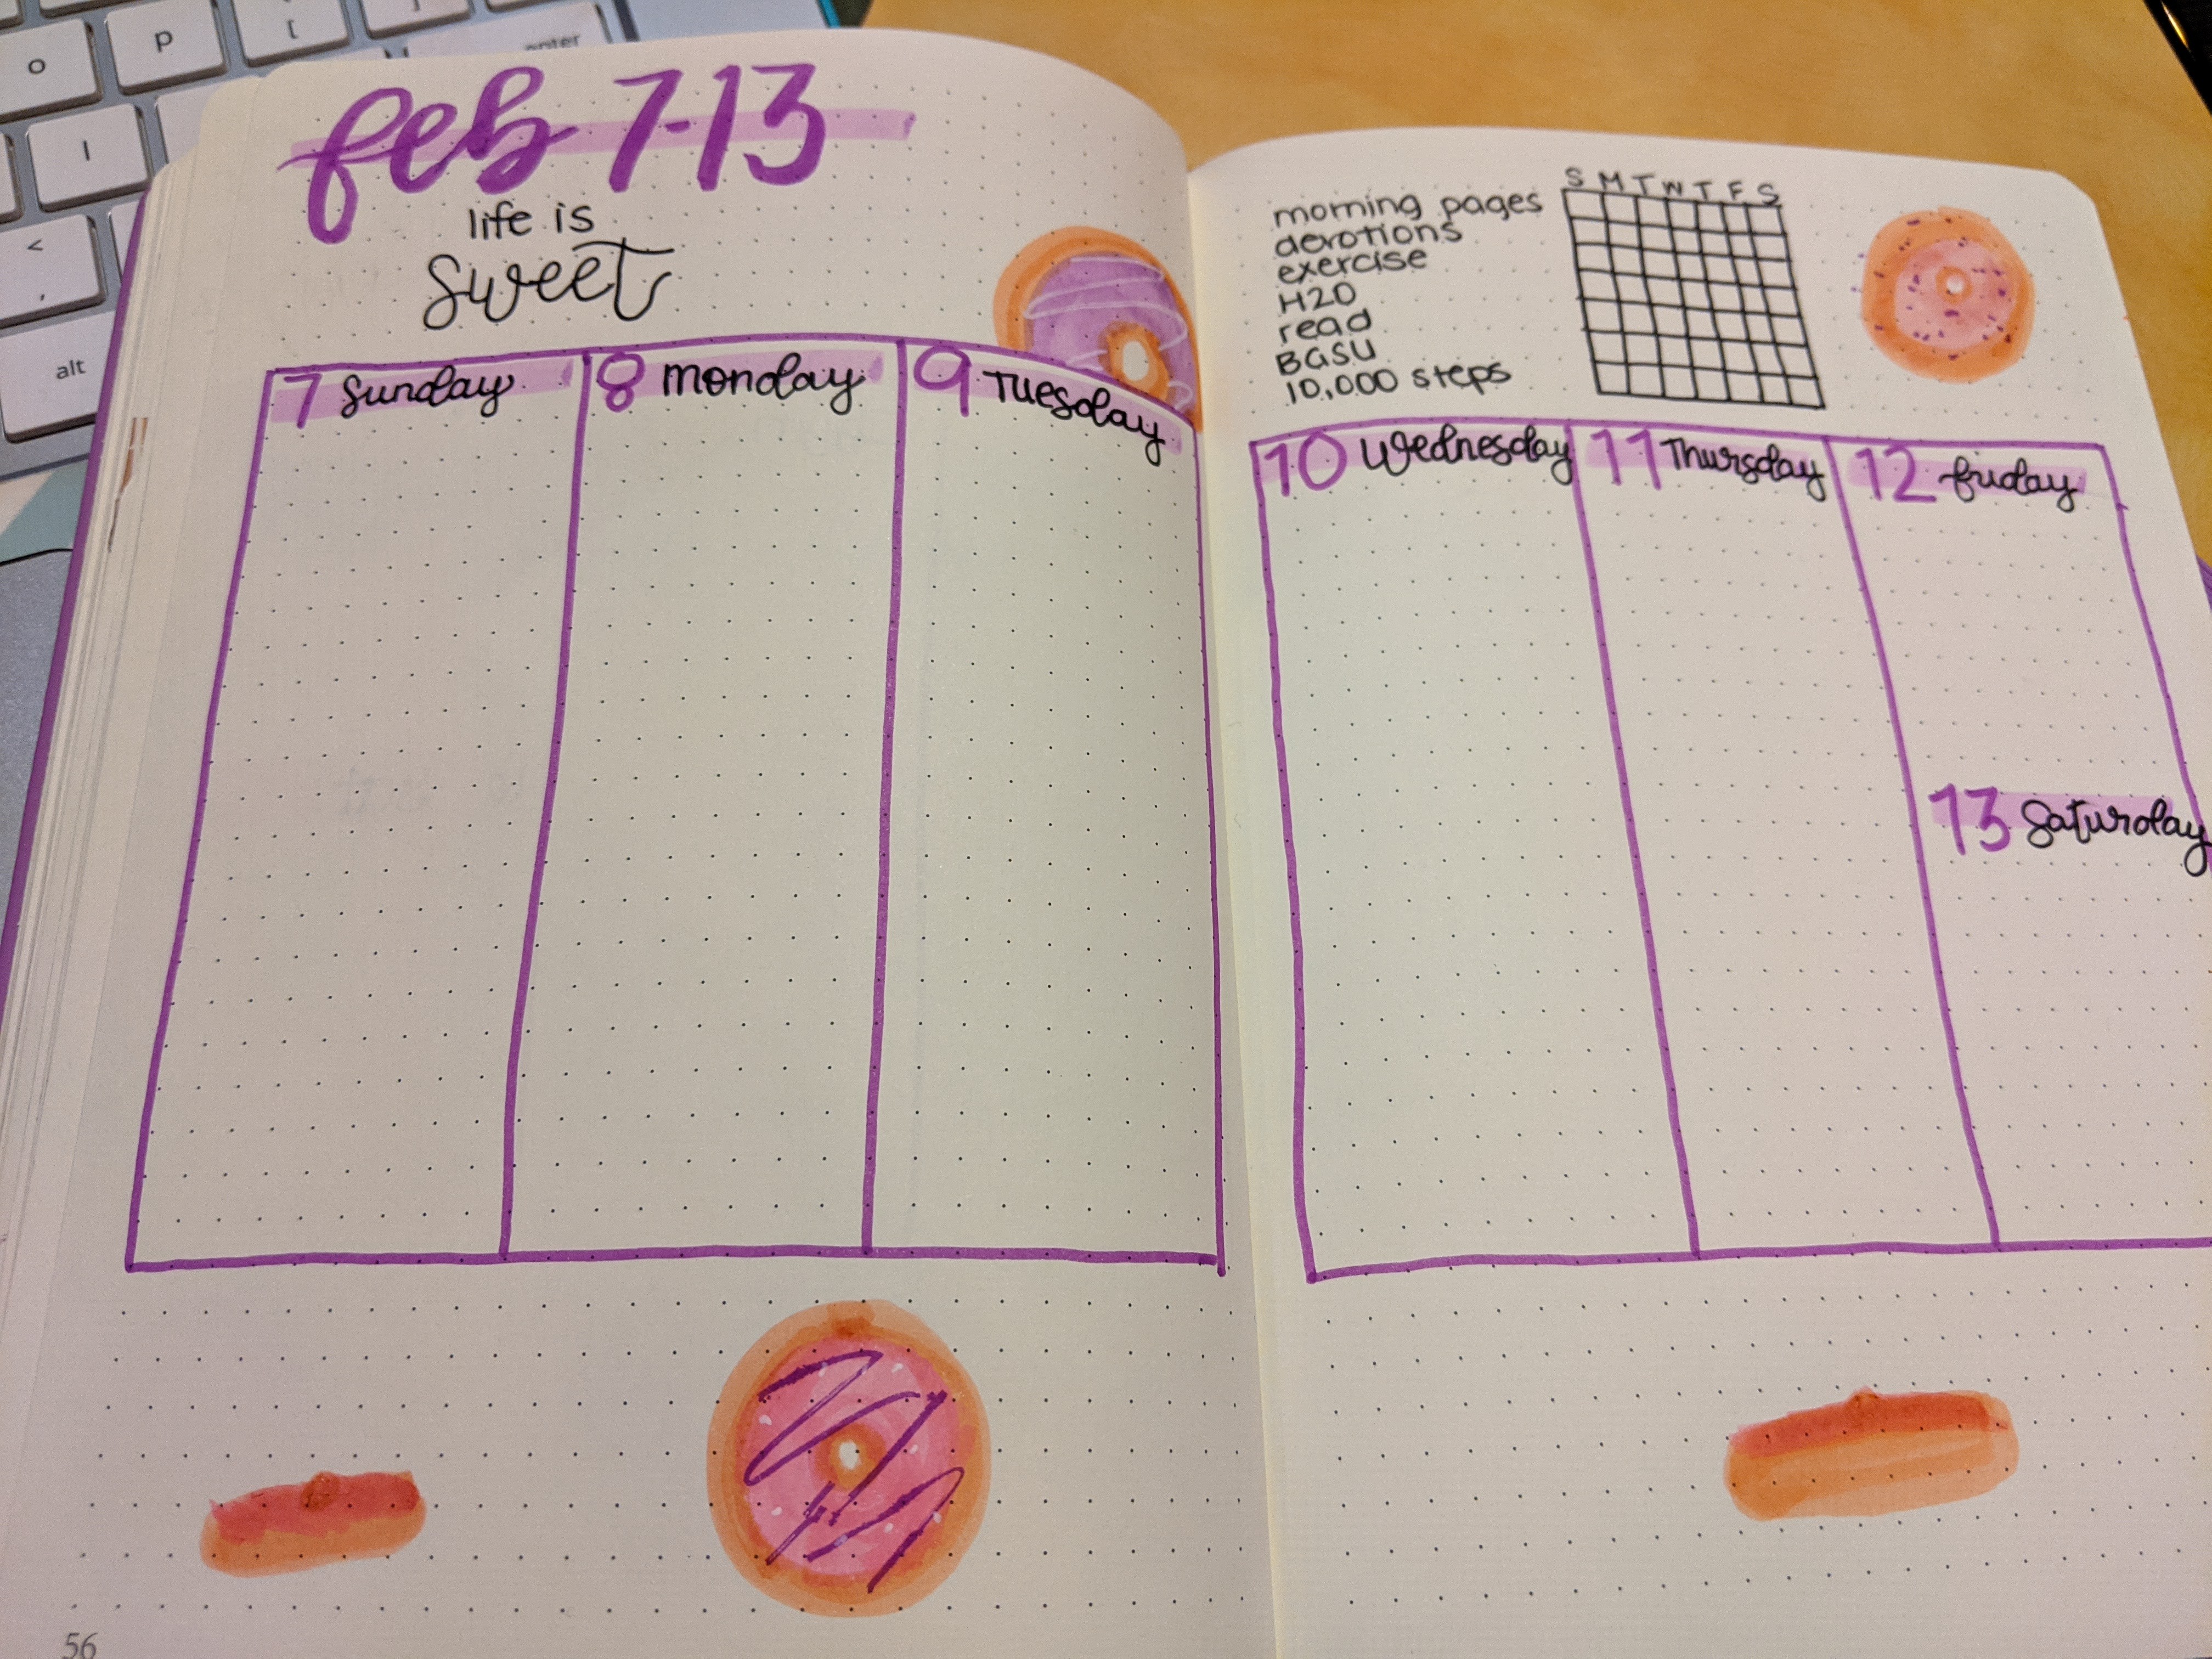 o
p
[
enter
l
<
,
alt
feb 7-13
life is
sweet
7 Sunday
8 monday
9 Tuesday
56
S M T W T F S
morning pages
devotions
exercise
H2O
read
BGSU
10,000 steps
10 Wednesday
11 Thursday
12 friday
13 Saturday